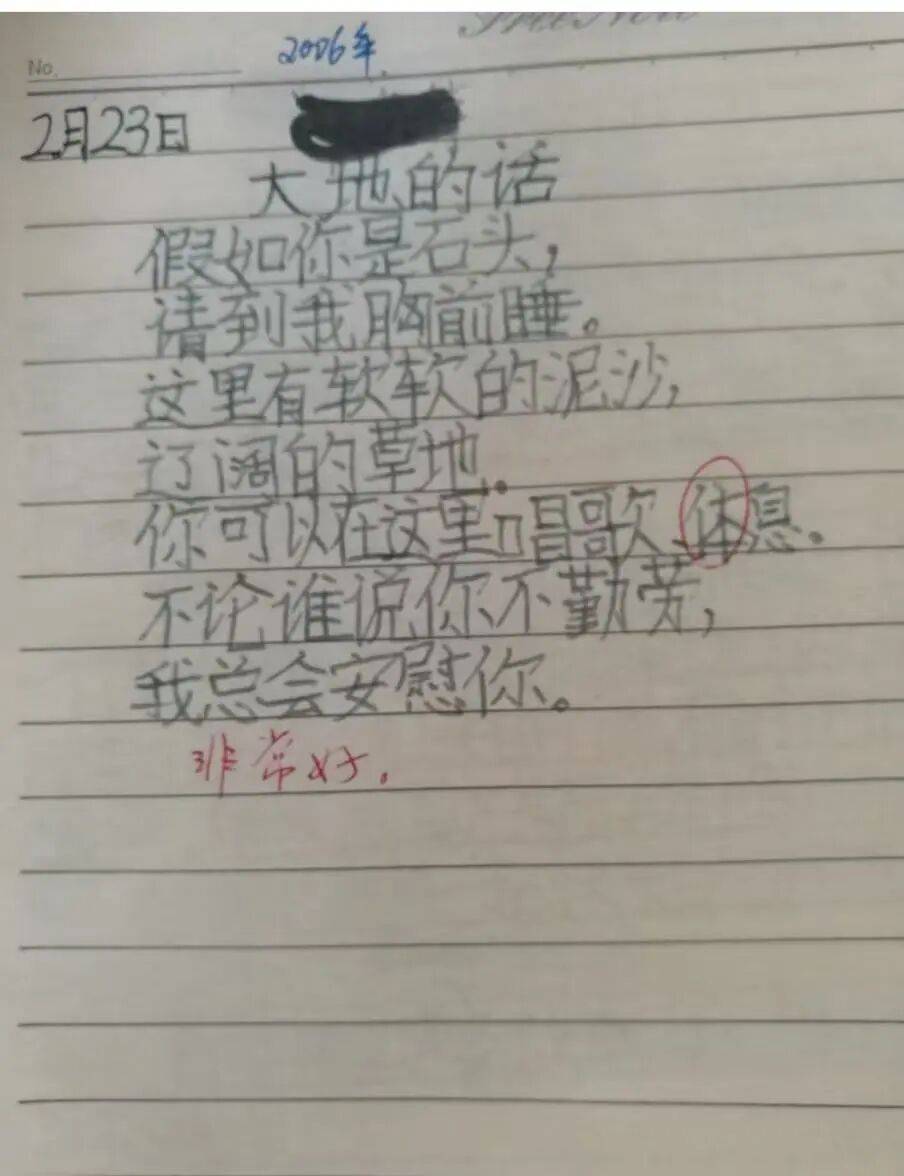 2006年.
No.
2月23日
大地的话
假如你是石头,
请到我胸前睡。
这里有软软的泥沙,
辽阔的草地.
你可以在这里唱歌、体息.
不论谁说你不勤劳,
我总会安慰你。
非常好.